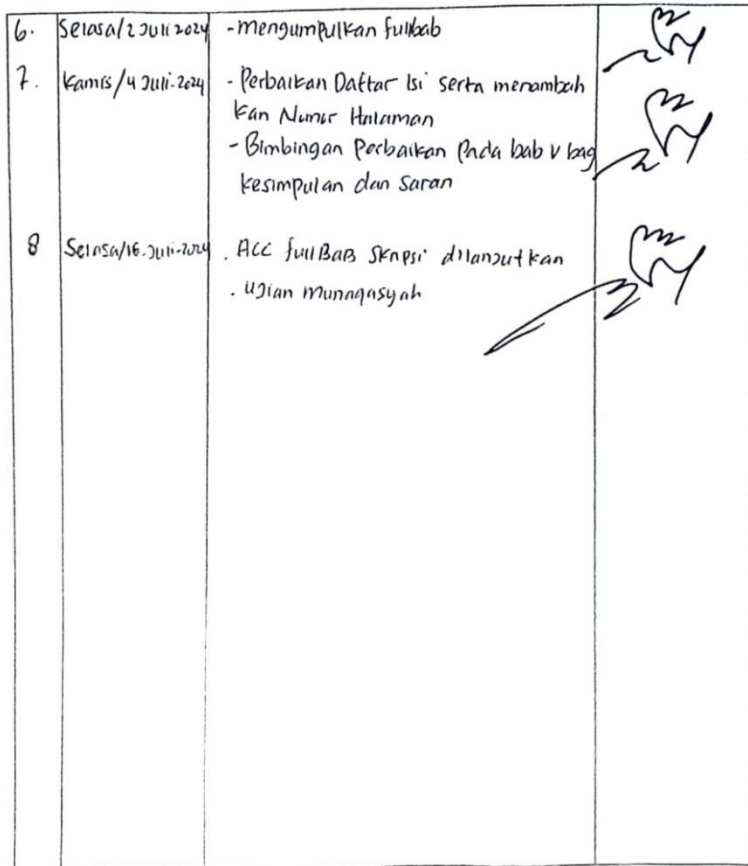 6. Selasa/2 Juli 2024 - mengumpulkan fullbab
7. Kamis/4 Juli-2024 - Perbaikan Daftar Isi serta menambah
kan Nomor Halaman
- Bimbingan Perbaikan Pada bab V bag
kesimpulan dan Saran
8 Selasa/16-Juli-2024 . ACC full BAB Skripsi dilanjutkan
. Ujian munaqasyah